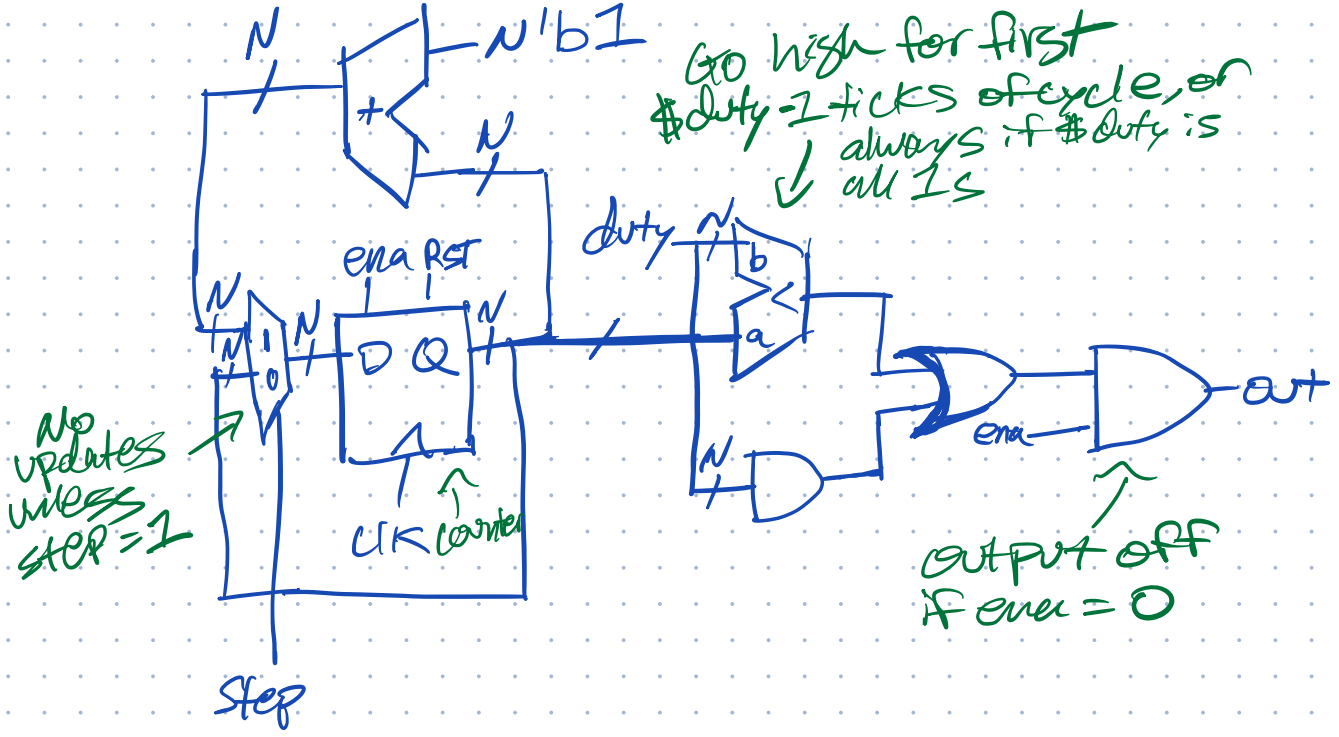 N
N'b1
+
N
Go high for first
$duty-1 ticks of cycle, or
always if $duty is
all 1s
duty
N
b
<
a
ena RST
N
N
N
1
0
N
D Q
No
updates
unless
step=1
clk
counter
N
ena
out
output off
if ena = 0
step